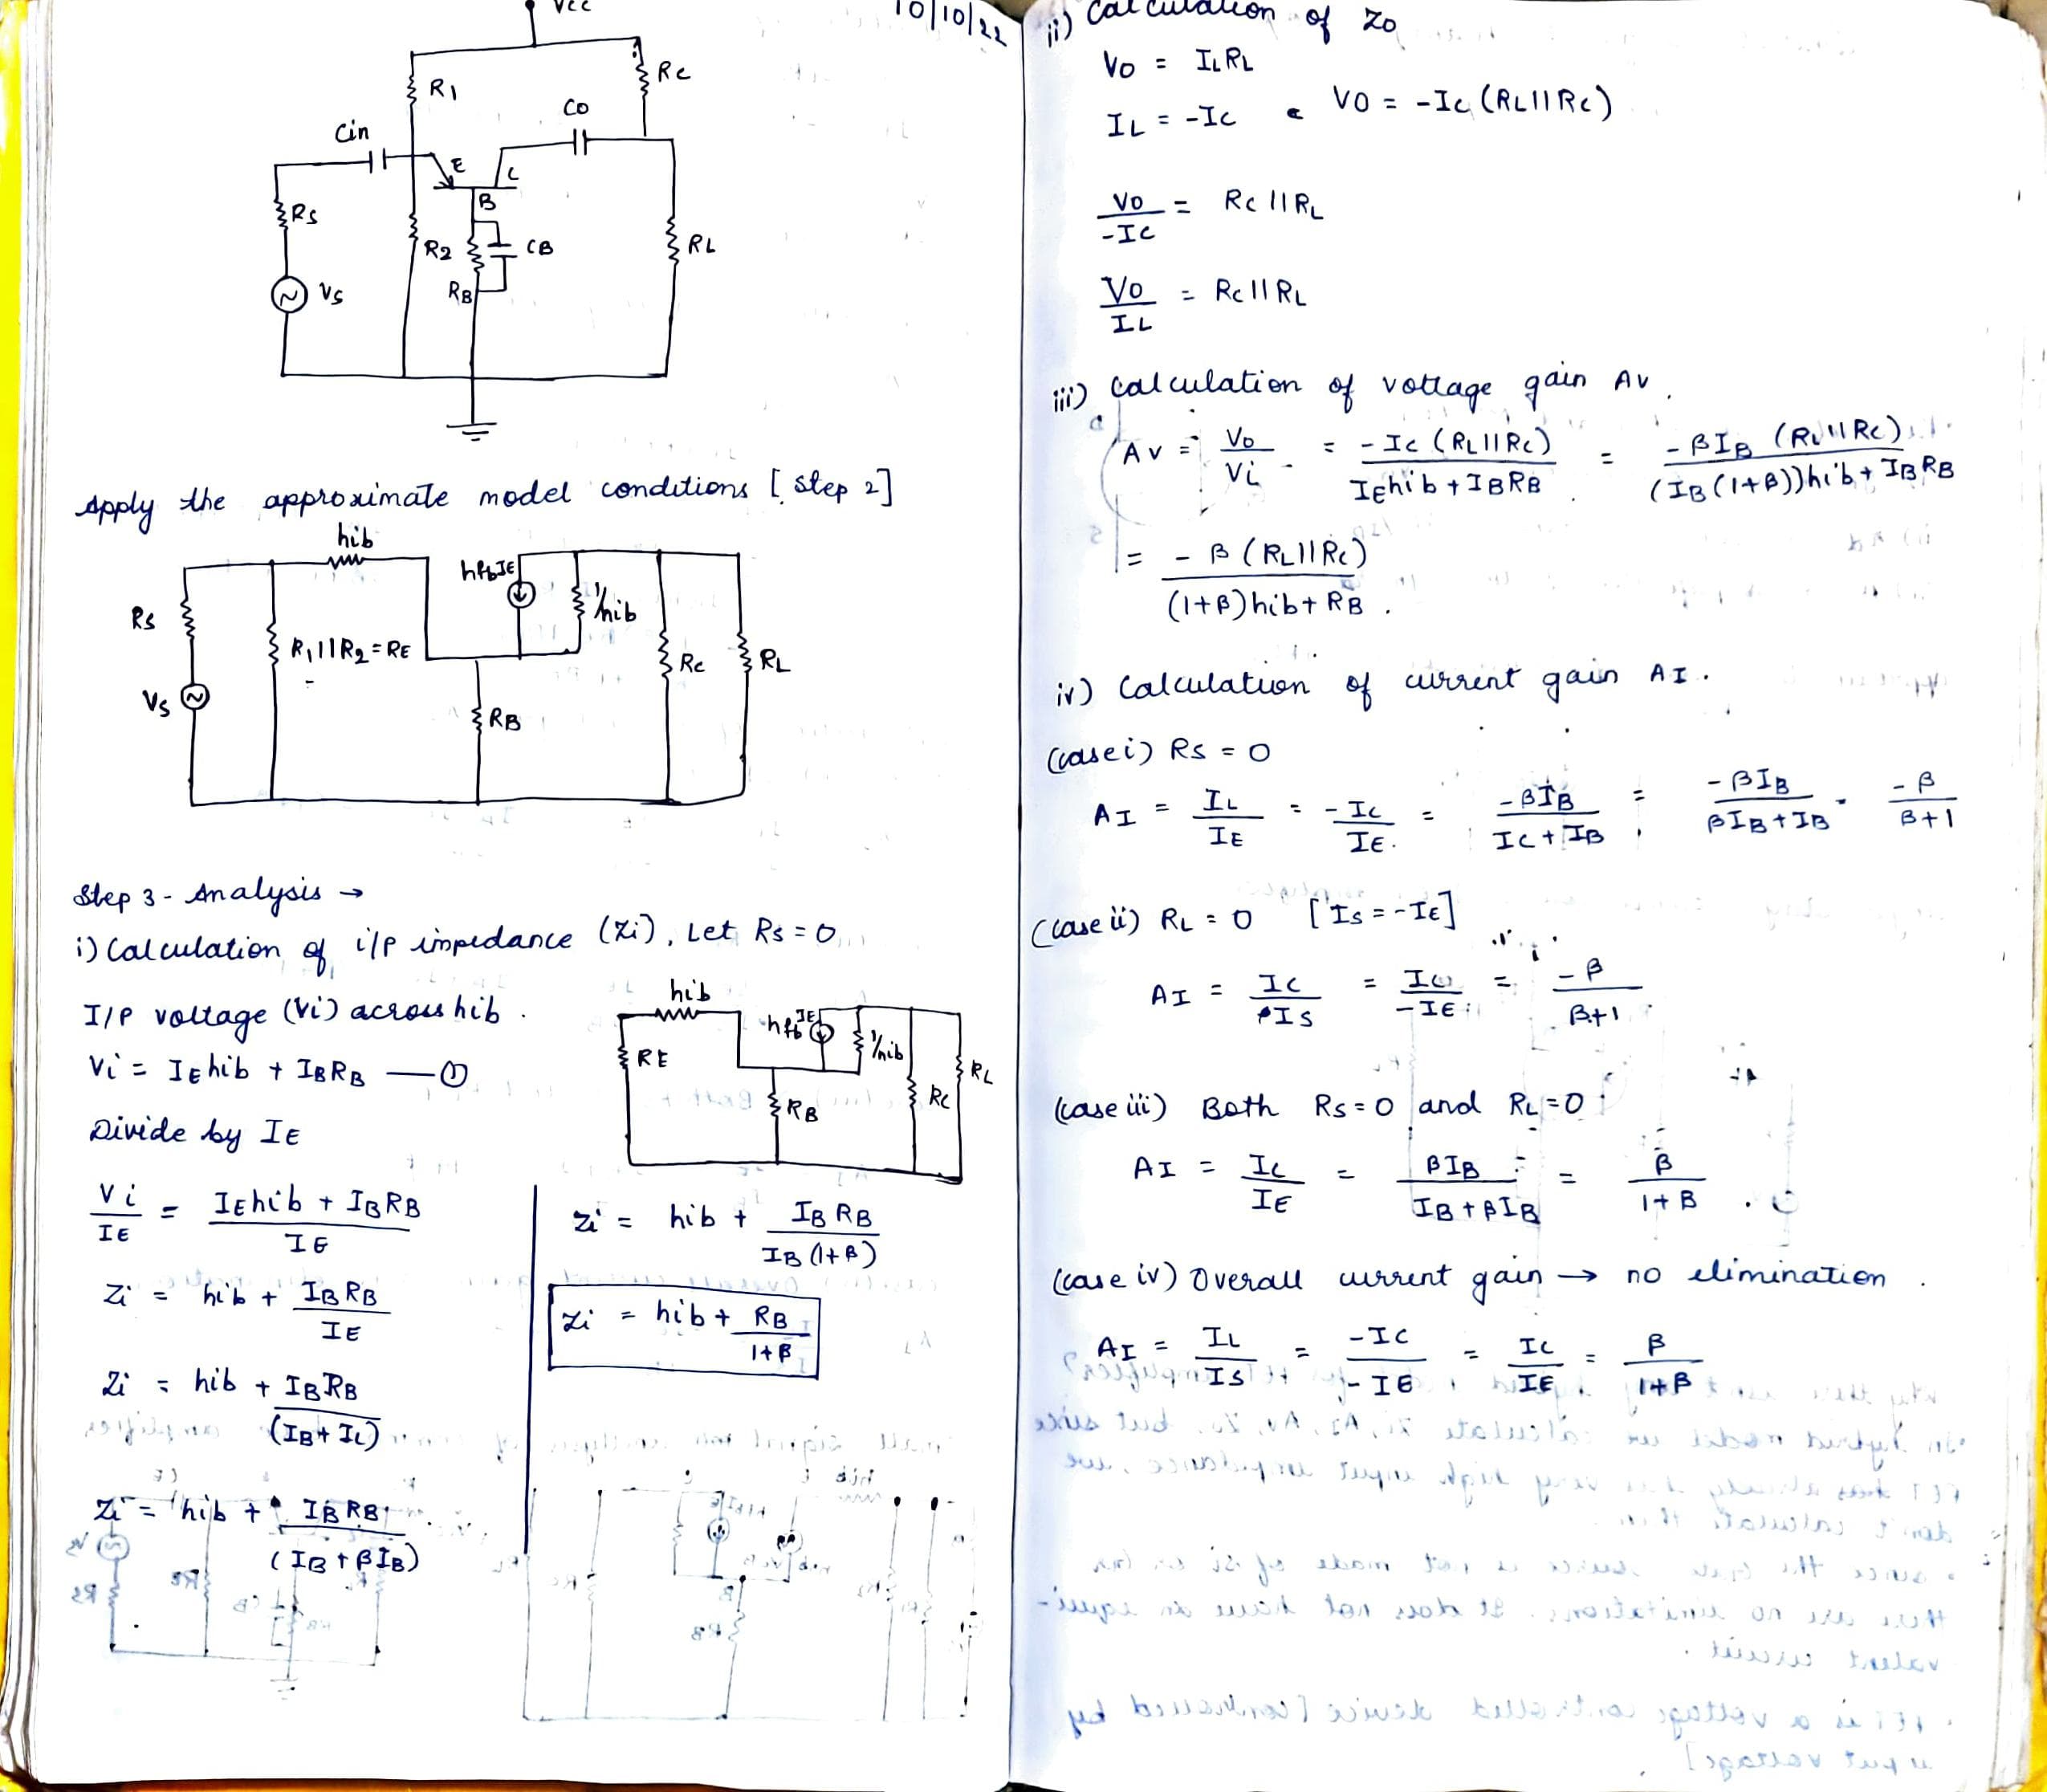 Vcc
10/10/22
R1
Rc
Cin
Co
E
C
B
Rs
R2
CB
RL
Vs
RB
Apply the approximate model conditions [step 2]
hib
hfbIE
1/hib
Rs
R1||R2=RE
Rc
RL
Vs
RB
Step 3 - Analysis →
i) Calculation of i/p impedance (Zi), Let Rs=0
I/P voltage (Vi) across hib.
Vi = IEhib + IBRB —①
Divide by IE
hib
hfbIE
1/hib
RE
RB
RC
RL
Vi/IE = (IEhib + IBRB)/IE
Zi = hib + IBRB/IE
Zi = hib + IBRB/(IB+IC)
Zi = hib + IBRB/(IB+βIB)
Zi = hib + IBRB/IB(1+β)
Zi = hib + RB/1+β
ii) Calculation of Zo
Vo = ILRL
IL = -IC
Vo = -Ic (RL||Rc)
Vo/-Ic = Rc||RL
Vo/IL = Rc||RL
iii) Calculation of voltage gain Av.
Av = Vo/Vi = -Ic (RL||Rc)/IEhib+IBRB = -βIB (RL||Rc)/(IB(1+β))hib+IBRB
= -β (RL||Rc)/(1+β)hib+RB.
iv) Calculation of current gain AI.
(case i) Rs = 0
AI = IL/IE = -Ic/IE. = -βIB/IC+IB = -βIB/βIB+IB = -β/β+1
(case ii) RL = 0 [Is = -IE]
AI = Ic/Is = Ic/-IE = -β/β+1
(case iii) Both Rs=0 and RL=0
AI = Ic/IE = βIB/IB+βIB = β/1+β.
(case iv) Overall current gain → no elimination.
AI = IL/Is = -IC/-IE = IC/IE = β/1+β